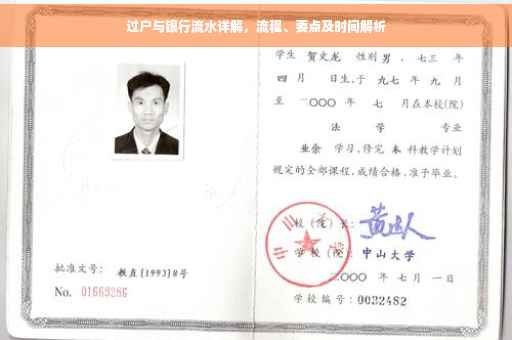 过户与银行流水详解，流程、要点及时间解析
学生 贺文龙 性别 男，七三 年
四 月 日生，于 九七 年 九 月
至 二〇〇〇 年 七 月在本校(院)
法 学 专业
业余 学习，修完 本 科教学计划
规定的全部课程，成绩合格，准予毕业。
校 (院) 长：
学 校 (院)：中山大学
二〇〇〇 年 七 月 一 日
学校编号：0032482
批准文号：教直[1993]8号
No. 01669286